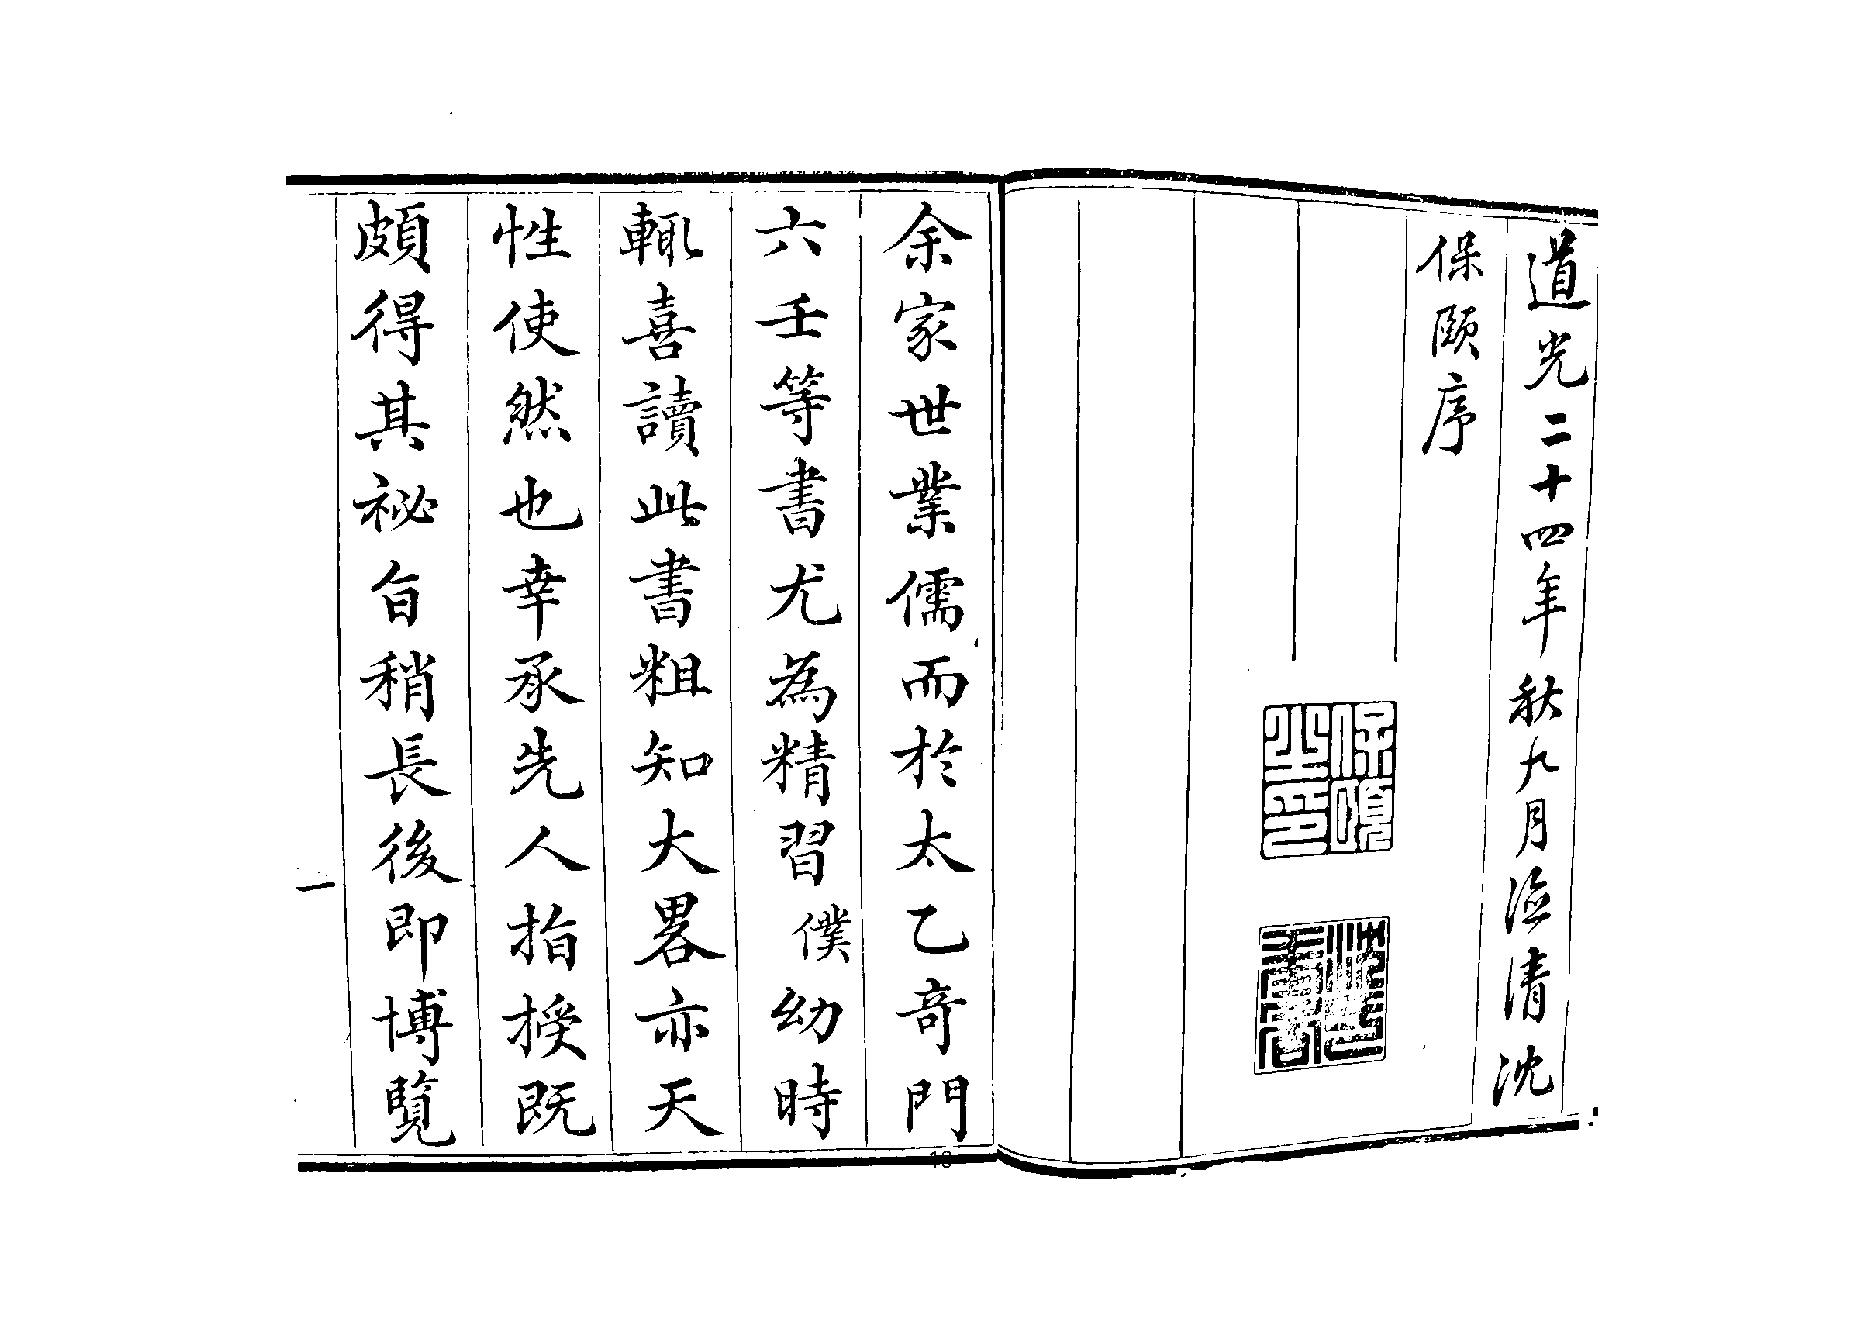 道光二十四年秋九月德清沈
保頤序
保頤之印
余家世業儒而於太乙竒門
六壬等書尤為精習僕幼時
輒喜讀此書粗知大畧亦天
性使然也幸承先人指授既
頗得其祕自稍長後即博覽
一